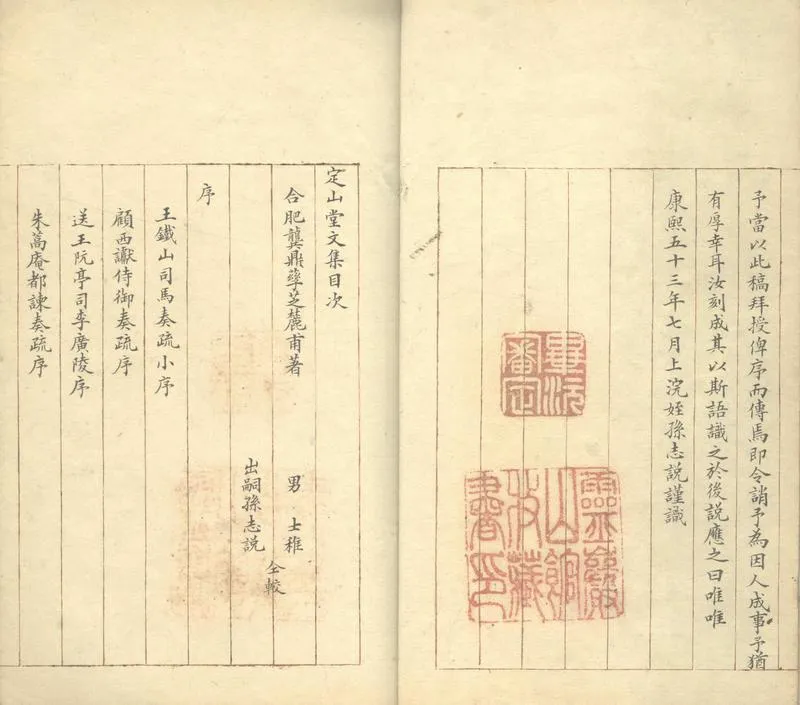 予當以此稿拜授俾序而傳焉即令誚予為因人成事予猶
有厚幸耳汝刻成其以斯語識之於後説應之曰唯唯
康熙五十三年七月上浣姪孫志説謹識
畢沅
審定
靈巖
山館
收藏
書印
定山堂文集目次
合肥龔鼎孳芝麓甫著 男 士稚
出嗣孫志説
仝較
序
王鐵山司馬奏疏小序
顧西巘侍御奏疏序
送王阮亭司李廣陵序
朱蒿庵都諫奏疏序